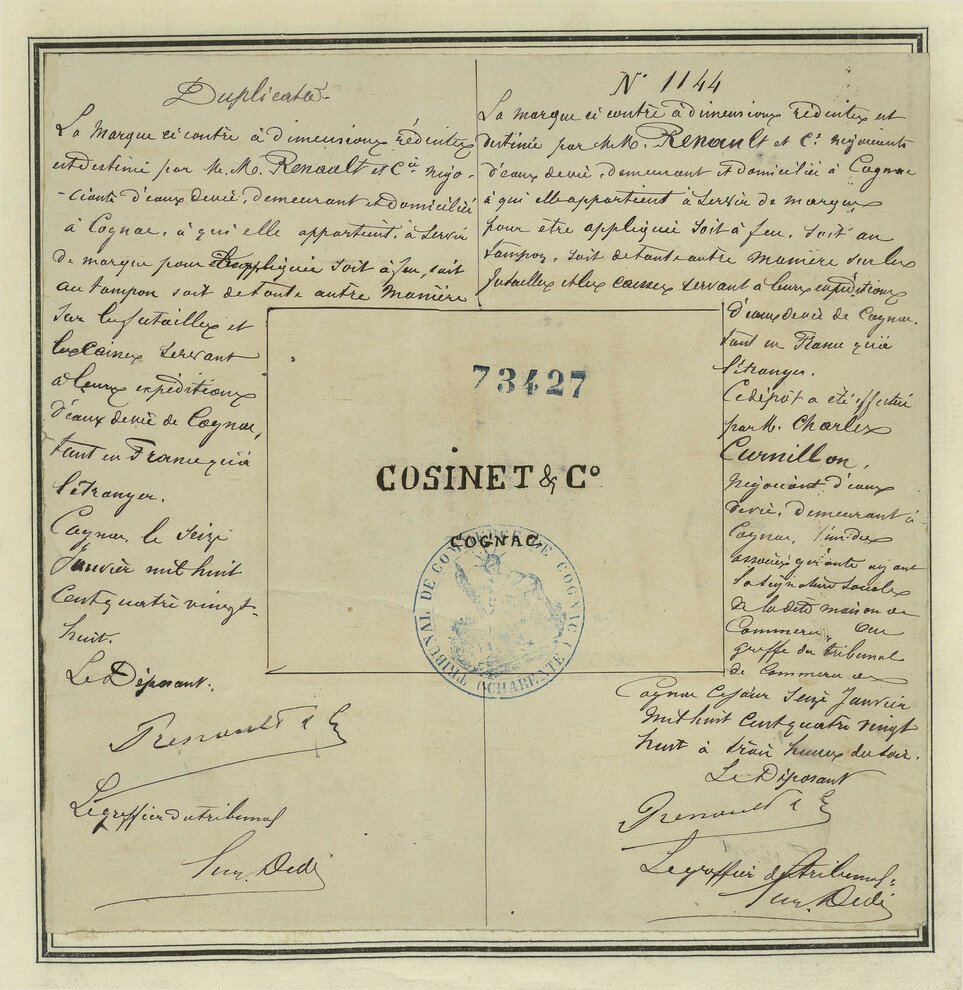 Duplicata.
La marque ci contre à dimensions réduites
est destinée par M. M. Renault et Cie négo-
-ciants d'eaux de vie, demeurant et domicilié
à Cognac, à qui elle appartient, à servir
de marque pour appliquée soit à feu, soit
au tampon soit de toute autre manière
sur les futailles et
les caisses servant
à leurs expéditions
d'eaux de vie de Cognac,
tant en France qu'à
l'étranger.
Cognac, le seize
Janvier mil huit
cent quatre vingt-
huit.
Le Déposant.
Renault & Co
Le greffier du tribunal
N° 1144
La marque ci contre à dimensions réduites est
destinée par M. M. Renault et Cie négociants
d'eaux de vie, demeurant et domicilié à Cognac
à qui elle appartient à servir de marque
pour être appliquée soit à feu, soit au
tampon, soit de toute autre manière sur les
futailles et les caisses servant à leurs expéditions
d'eaux de vie de Cognac.
tant en France qu'à
l'étranger.
Ce dépôt a été effectué
par M. Charles
Curnillon,
négociant d'eaux
de vie, demeurant à
Cognac, l'un des
associés gérants ayant
la signature sociale
de la dite maison de
Commerce, au
greffe du tribunal
de Commerce de
Cognac ce jour seize Janvier
mil huit cent quatre vingt
huit à trois heures du soir.
Le Déposant
Renault & Co
Le greffier du tribunal
73427
COSINET & Co
COGNAC
TRIBUNAL DE COMMERCE DE COGNAC (CHARENTE)